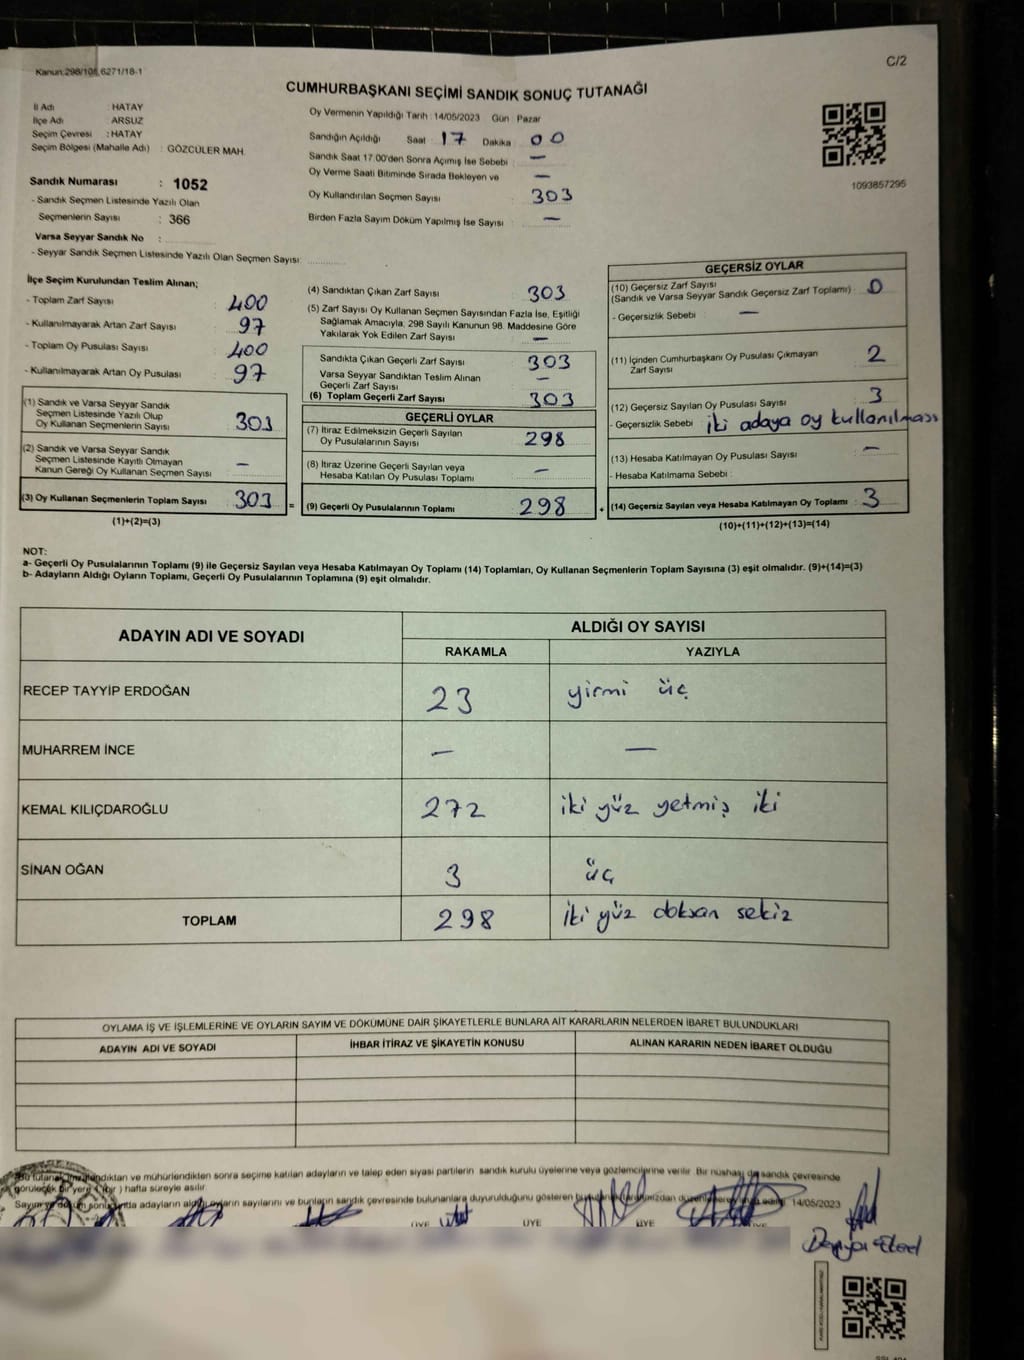 Kanun:298/105,6271/18-1
C/2
CUMHURBAŞKANI SEÇİMİ SANDIK SONUÇ TUTANAĞI
İl Adı : HATAY
İlçe Adı : ARSUZ
Seçim Çevresi : HATAY
Seçim Bölgesi (Mahalle Adı) : GÖZCÜLER MAH.
Sandık Numarası : 1052
- Sandık Seçmen Listesinde Yazılı Olan
Seçmenlerin Sayısı : 366
Varsa Seyyar Sandık No :
- Seyyar Sandık Seçmen Listesinde Yazılı Olan Seçmen Sayısı:
Oy Vermenin Yapıldığı Tarih : 14/05/2023 Gün : Pazar
Sandığın Açıldığı Saat : 17 Dakika : 00
Sandık Saat 17.00'den Sonra Açımış İse Sebebi : —
Oy Verme Saati Bitiminde Sırada Bekleyen ve —
Oy Kullandırılan Seçmen Sayısı 303
Birden Fazla Sayım Döküm Yapılmış İse Sayısı —
1093857295
İlçe Seçim Kurulundan Teslim Alınan;
- Toplam Zarf Sayısı 400
- Kullanılmayarak Artan Zarf Sayısı 97
- Toplam Oy Pusulası Sayısı 400
- Kullanılmayarak Artan Oy Pusulası 97
(1) Sandık ve Varsa Seyyar Sandık
Seçmen Listesinde Yazılı Olup
Oy Kullanan Seçmenlerin Sayısı 303
(2) Sandık ve Varsa Seyyar Sandık
Seçmen Listesinde Kayıtlı Olmayan
Kanun Gereği Oy Kullanan Seçmen Sayısı —
(3) Oy Kullanan Seçmenlerin Toplam Sayısı 303 =
(1)+(2)=(3)
(4) Sandıktan Çıkan Zarf Sayısı 303
(5) Zarf Sayısı Oy Kullanan Seçmen Sayısından Fazla İse, Eşitliği
Sağlamak Amacıyla, 298 Sayılı Kanunun 98. Maddesine Göre
Yakılarak Yok Edilen Zarf Sayısı —
Sandıkta Çıkan Geçerli Zarf Sayısı 303
Varsa Seyyar Sandıktan Teslim Alınan
Geçerli Zarf Sayısı —
(6) Toplam Geçerli Zarf Sayısı 303
GEÇERLİ OYLAR
(7) İtiraz Edilmeksizin Geçerli Sayılan
Oy Pusulalarının Sayısı 298
(8) İtiraz Üzerine Geçerli Sayılan veya
Hesaba Katılan Oy Pusulası Toplamı —
(9) Geçerli Oy Pusulalarının Toplamı 298 +
GEÇERSİZ OYLAR
(10) Geçersiz Zarf Sayısı
(Sandık ve Varsa Seyyar Sandık Geçersiz Zarf Toplamı) 0
- Geçersizlik Sebebi —
(11) İçinden Cumhurbaşkanı Oy Pusulası Çıkmayan
Zarf Sayısı 2
(12) Geçersiz Sayılan Oy Pusulası Sayısı 3
- Geçersizlik Sebebi iki adaya oy kullanılması
(13) Hesaba Katılmayan Oy Pusulası Sayısı —
- Hesaba Katılmama Sebebi :
(14) Geçersiz Sayılan veya Hesaba Katılmayan Oy Toplamı 3
(10)+(11)+(12)+(13)=(14)
NOT:
a- Geçerli Oy Pusulalarının Toplamı (9) ile Geçersiz Sayılan veya Hesaba Katılmayan Oy Toplamı (14) Toplamları, Oy Kullanan Seçmenlerin Toplam Sayısına (3) eşit olmalıdır. (9)+(14)=(3)
b- Adayların Aldığı Oyların Toplamı, Geçerli Oy Pusulalarının Toplamına (9) eşit olmalıdır.
ADAYIN ADI VE SOYADI ALDIĞI OY SAYISI
RAKAMLA YAZIYLA
RECEP TAYYİP ERDOĞAN 23 yirmi üç
MUHARREM İNCE — —
KEMAL KILIÇDAROĞLU 272 iki yüz yetmiş iki
SİNAN OĞAN 3 üç
TOPLAM 298 iki yüz doksan sekiz
OYLAMA İŞ VE İŞLEMLERİNE VE OYLARIN SAYIM VE DÖKÜMÜNE DAİR ŞİKAYETLERLE BUNLARA AİT KARARLARIN NELERDEN İBARET BULUNDUKLARI
ADAYIN ADI VE SOYADI İHBAR İTİRAZ VE ŞİKAYETİN KONUSU ALINAN KARARIN NEDEN İBARET OLDUĞU
Bu tutanak imzalandıktan ve mühürlendikten sonra seçime katılan adayların ve talep eden siyasi partilerin sandık kurulu üyelerine veya gözlemcilerine verilir. Bir nüshası da sandık çevresinde
görülecek bir yere (bir) hafta süreyle asılır.
Sayım ve döküm sonucunda adayların aldığı oyların sayılarını ve bunların sandık çevresinde bulunanlara duyurulduğunu gösteren 14/05/2023
ÜYE ÜYE ÜYE